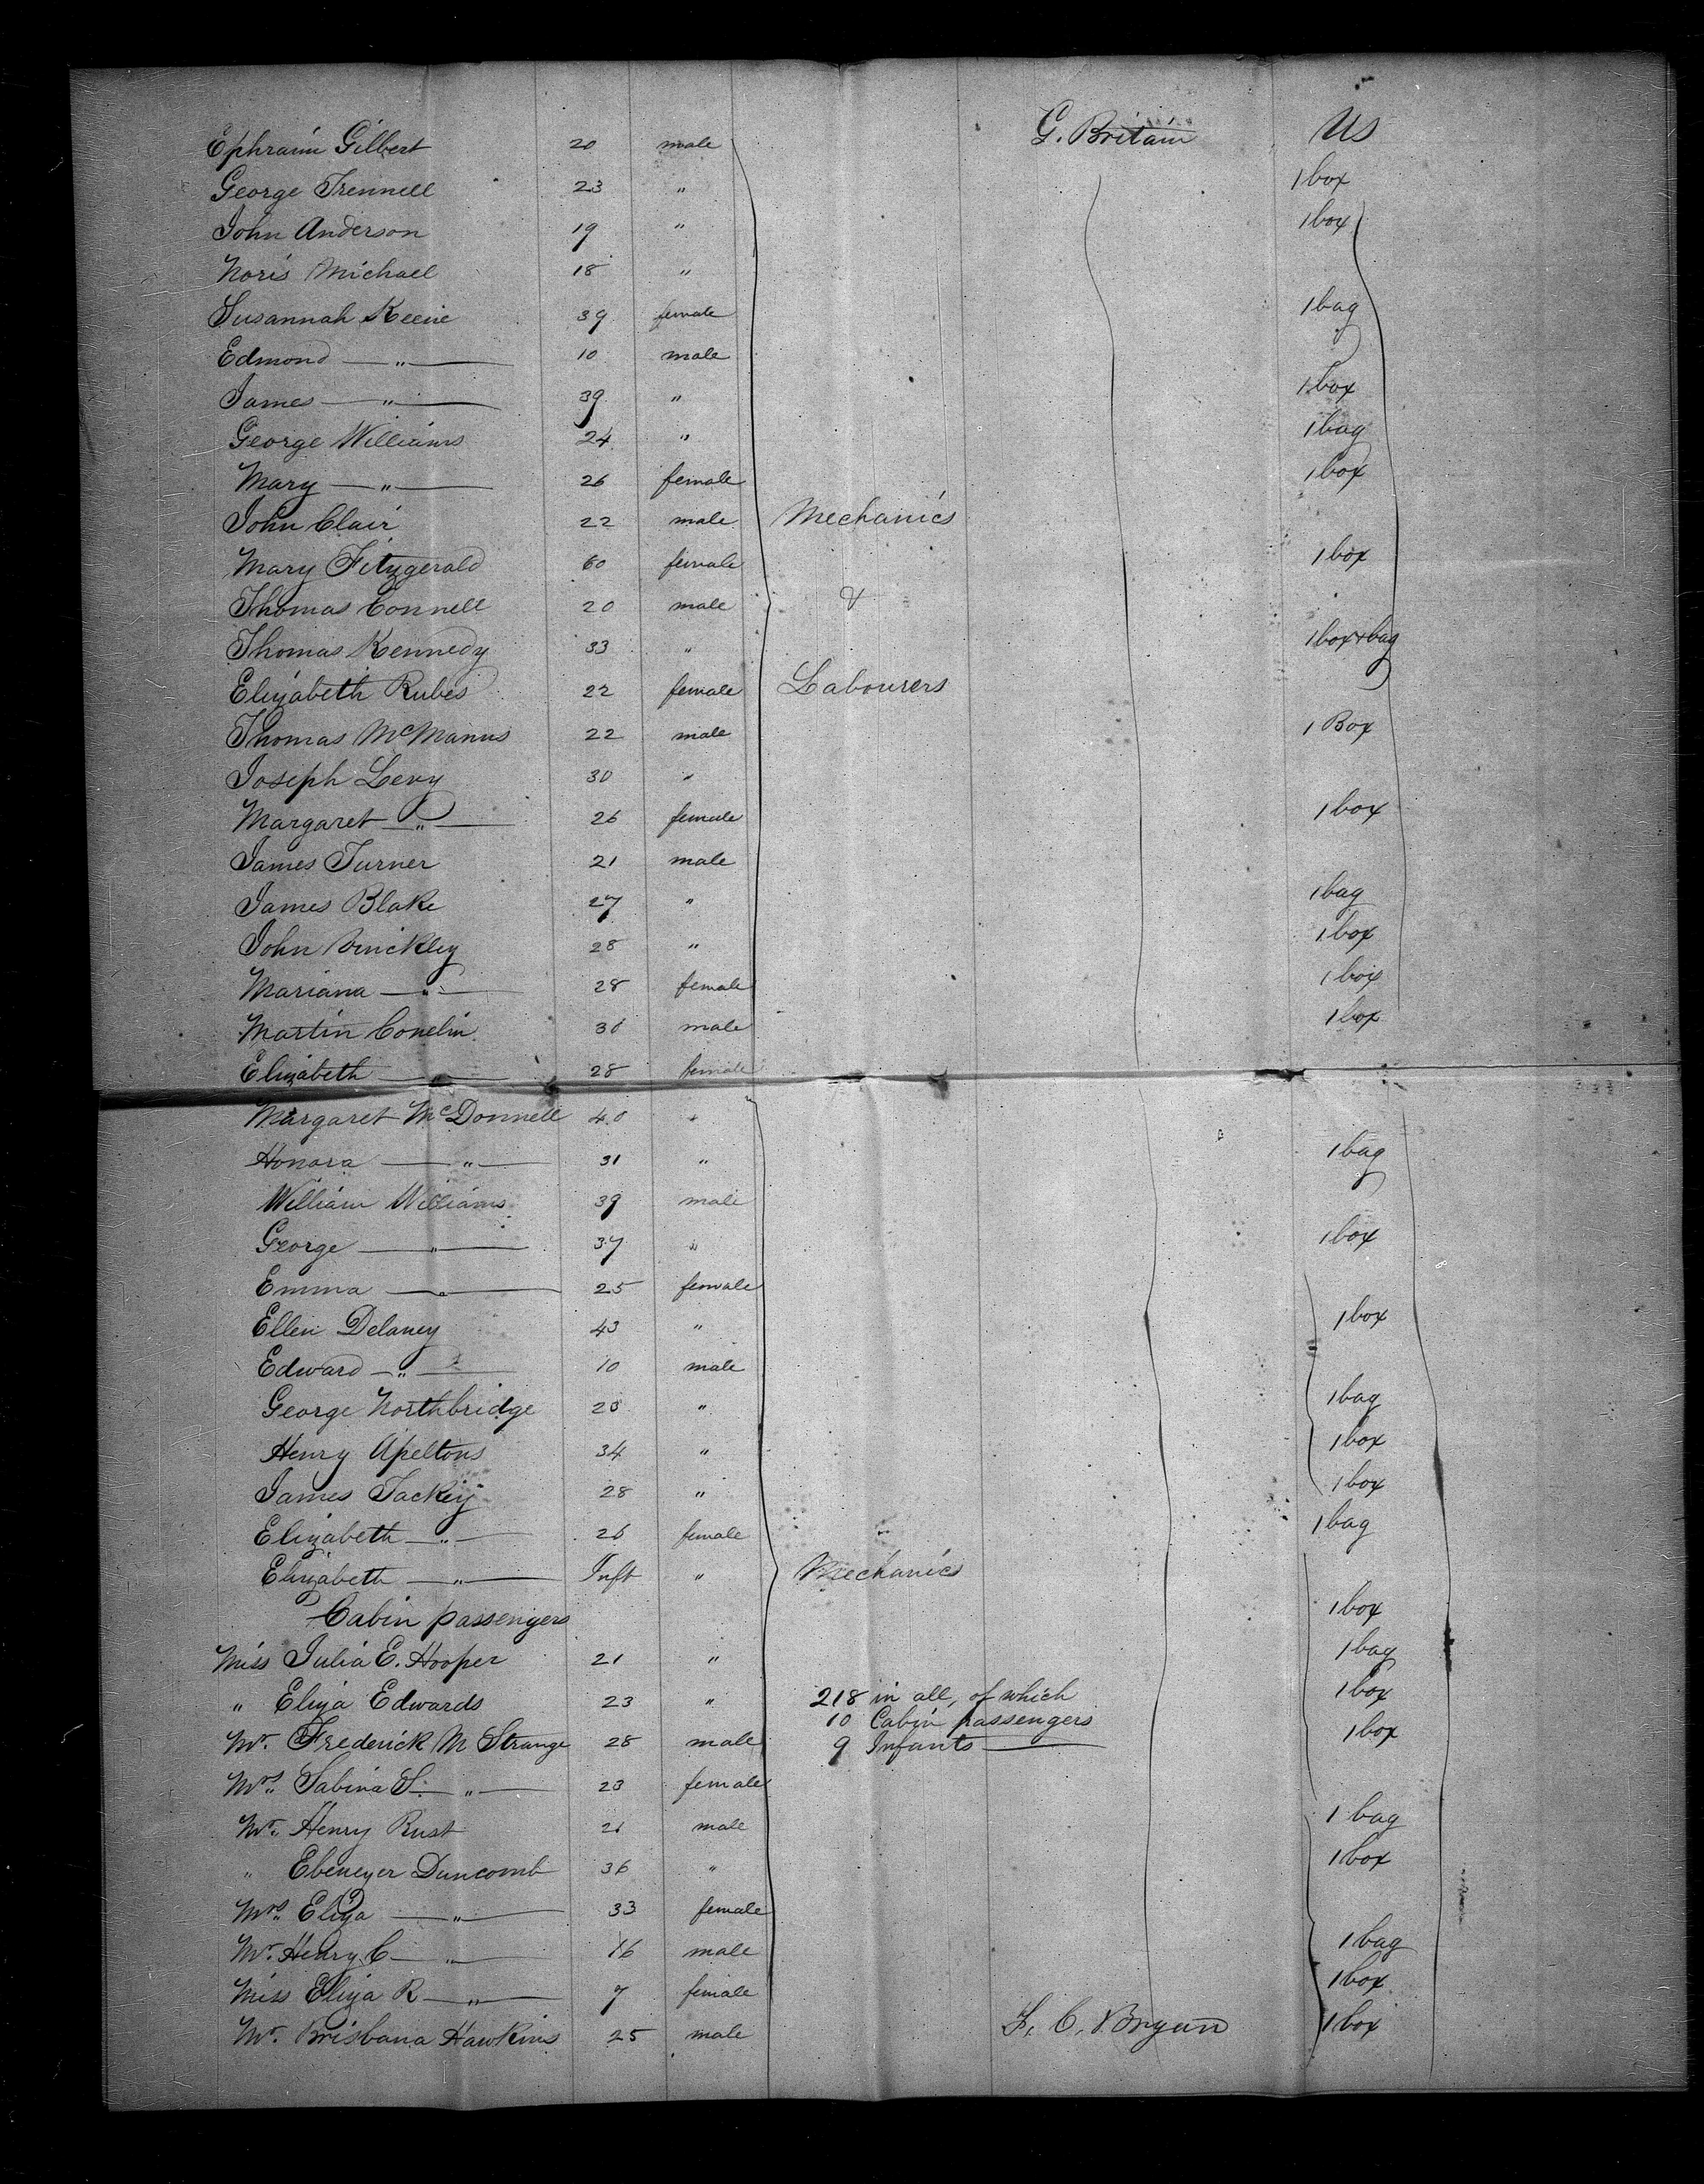 Ephraim Gilbert 20 male G. Britain US
George Trennell 23 " 1 box
John Anderson 19 " 1 box
Noris Michael 18 "
Susannah Keene 39 female 1 bag
Edmond — " — 10 male
James — " — 39 " 1 box
George Williams 24 " 1 bag
Mary — " — 26 female 1 box
John Clair 22 male Mechanics
Mary Fitzgerald 60 female 1 box
Thomas Connell 20 male &
Thomas Kennedy 33 " 1 box & bag
Elizabeth Rubes 22 female Labourers
Thomas McManus 22 male 1 Box
Joseph Levy 30 "
Margaret — " — 26 female 1 box
James Turner 21 male
James Blake 27 " 1 bag
John Vinckley 28 " 1 box
Mariana — " — 28 female 1 box
Martin Conelin 30 male 1 box
Elizabeth — 28 female
Margaret McDonnell 40 "
Honora — " — 31 " 1 bag
William Williams 39 male
George — " — 37 " 1 box
Emma — " — 25 female
Ellen Delaney 43 " 1 box
Edward — " — 10 male
George Northbridge 20 " 1 bag
Henry Apeltons 34 " 1 box
James Tackey 28 " 1 box
Elizabeth — " — 26 female 1 bag
Elizabeth — " — Inft " Mechanics
Cabin passengers 1 box
Miss Julia E. Hooper 21 " 1 bag
" Eliza Edwards 23 " 218 in all, of which 1 box
10 Cabin passengers
Mr. Frederick M Strange 28 male 9 Infants — 1 box
Mrs. Sabina S. — " — 23 female
Mr. Henry Rust 21 male 1 bag
" Ebenezer Duncomb 36 " 1 box
Mrs. Eliza — " — 33 female
Mr. Henry C — " — 16 male 1 bag
Miss Eliza R — " — 7 female 1 box
Mr. Brisbana Hawkins 25 male F. C. Bryan 1 box